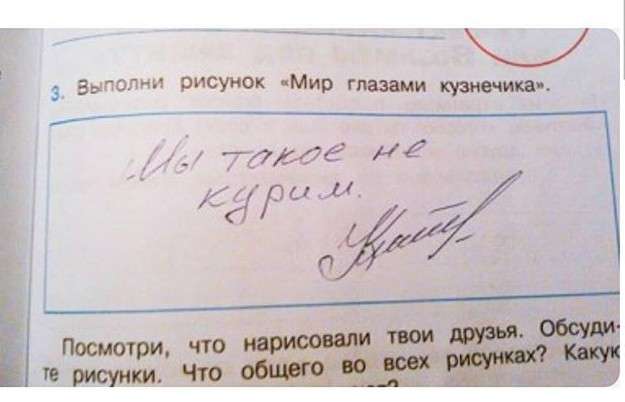 3. Выполни рисунок «Мир глазами кузнечика».
Мы такое не
курим.
Посмотри, что нарисовали твои друзья. Обсуди-
те рисунки. Что общего во всех рисунках? Какук